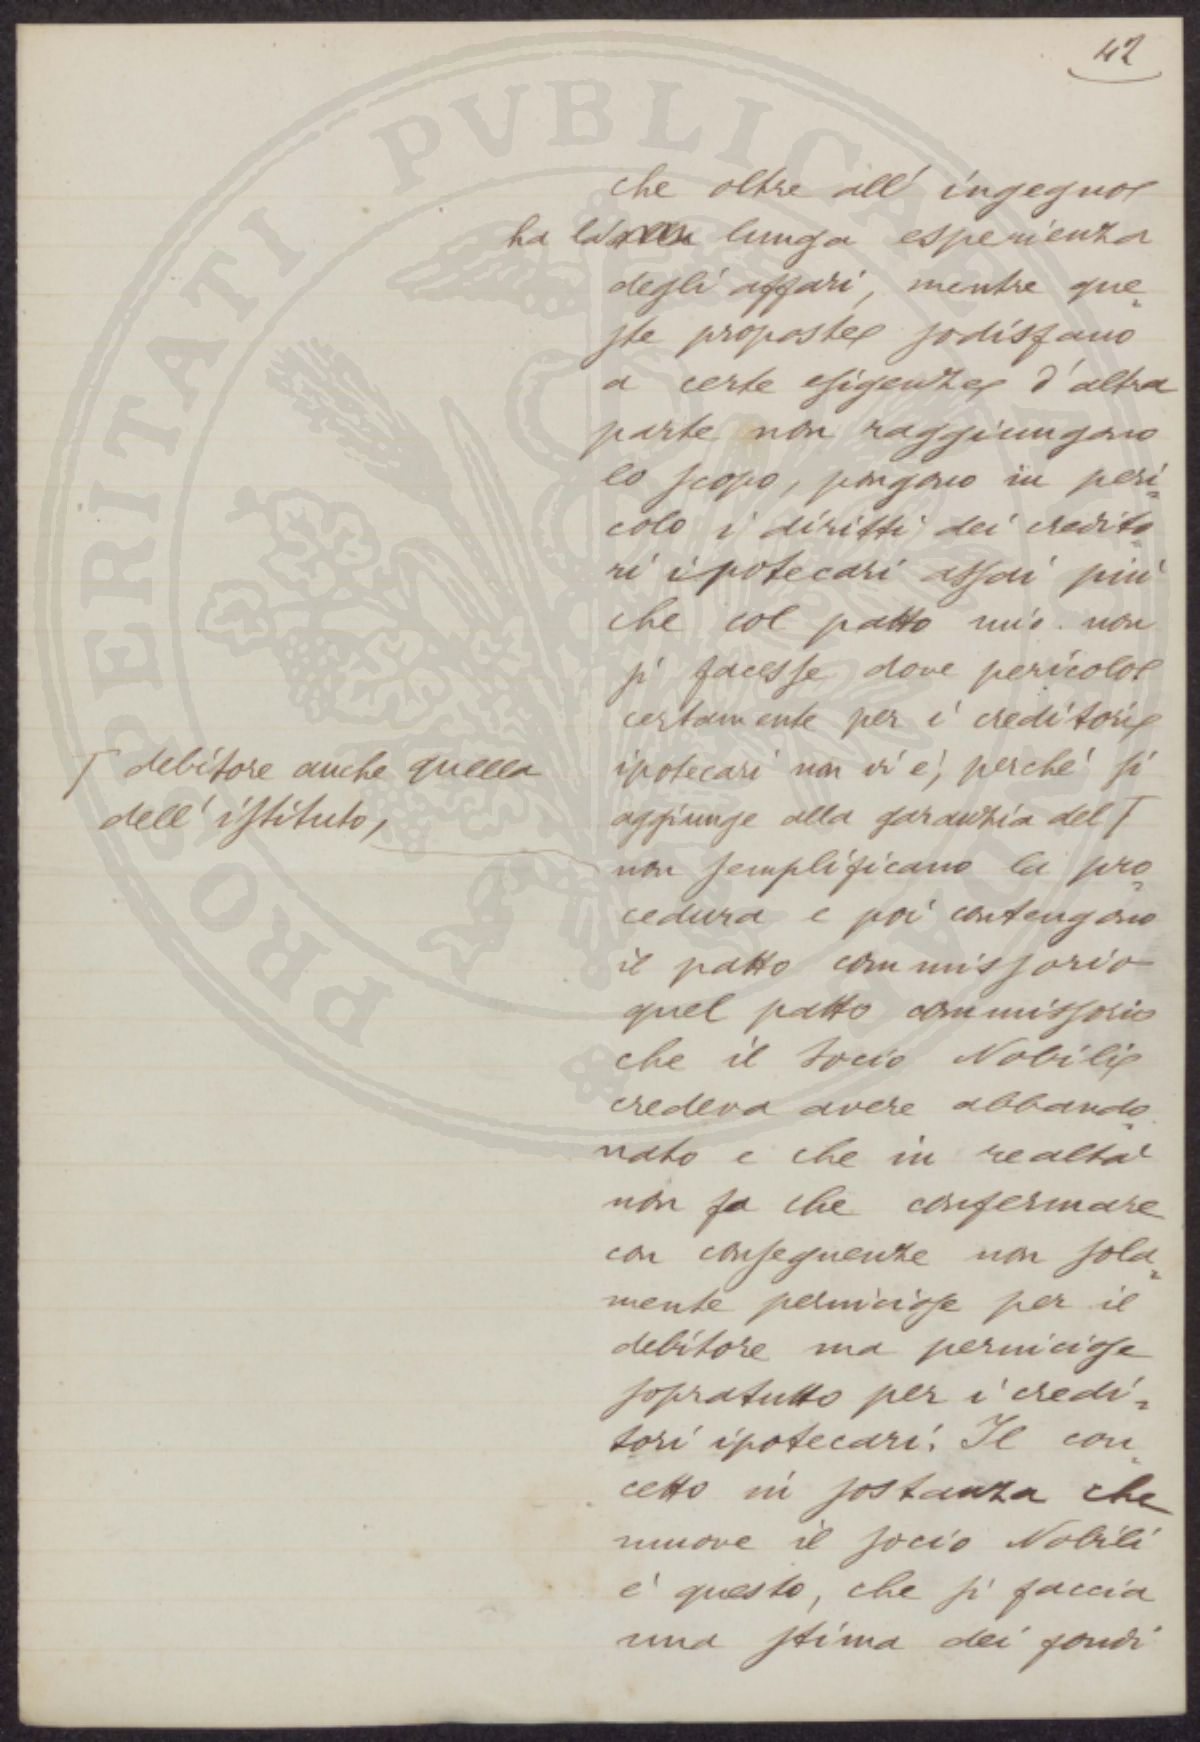 42
che oltre all' ingegno
ha la lunga esperienza
degli affari, mentre que=
ste proposte sodisfano
a certe esigenze d'altra
parte non raggiungono
lo scopo, pongono in peri=
colo i diritti dei credito=
ri ipotecari assai più
che col patto mio non
si facesse dove pericolo
certamente per i creditori
ipotecari non vi è, perché si
aggiunge alla garanzia del Γ
Γ debitore anche quella
dell' istituto,
non semplificano la pro=
cedura e poi contengono
il patto commissorio
quel patto commissorio
che il socio Nobili
credeva avere abbando=
nato e che in realtà
non fa che confermare
con conseguenze non sola=
mente perniciose per il
debitore ma perniciose
sopratutto per i credi=
tori ipotecari. Il con=
cetto in sostanza che
muove il socio Nobili
è questo, che si faccia
una stima dei fondi
PROSPERITATI PVBLICAE AVGENDAE